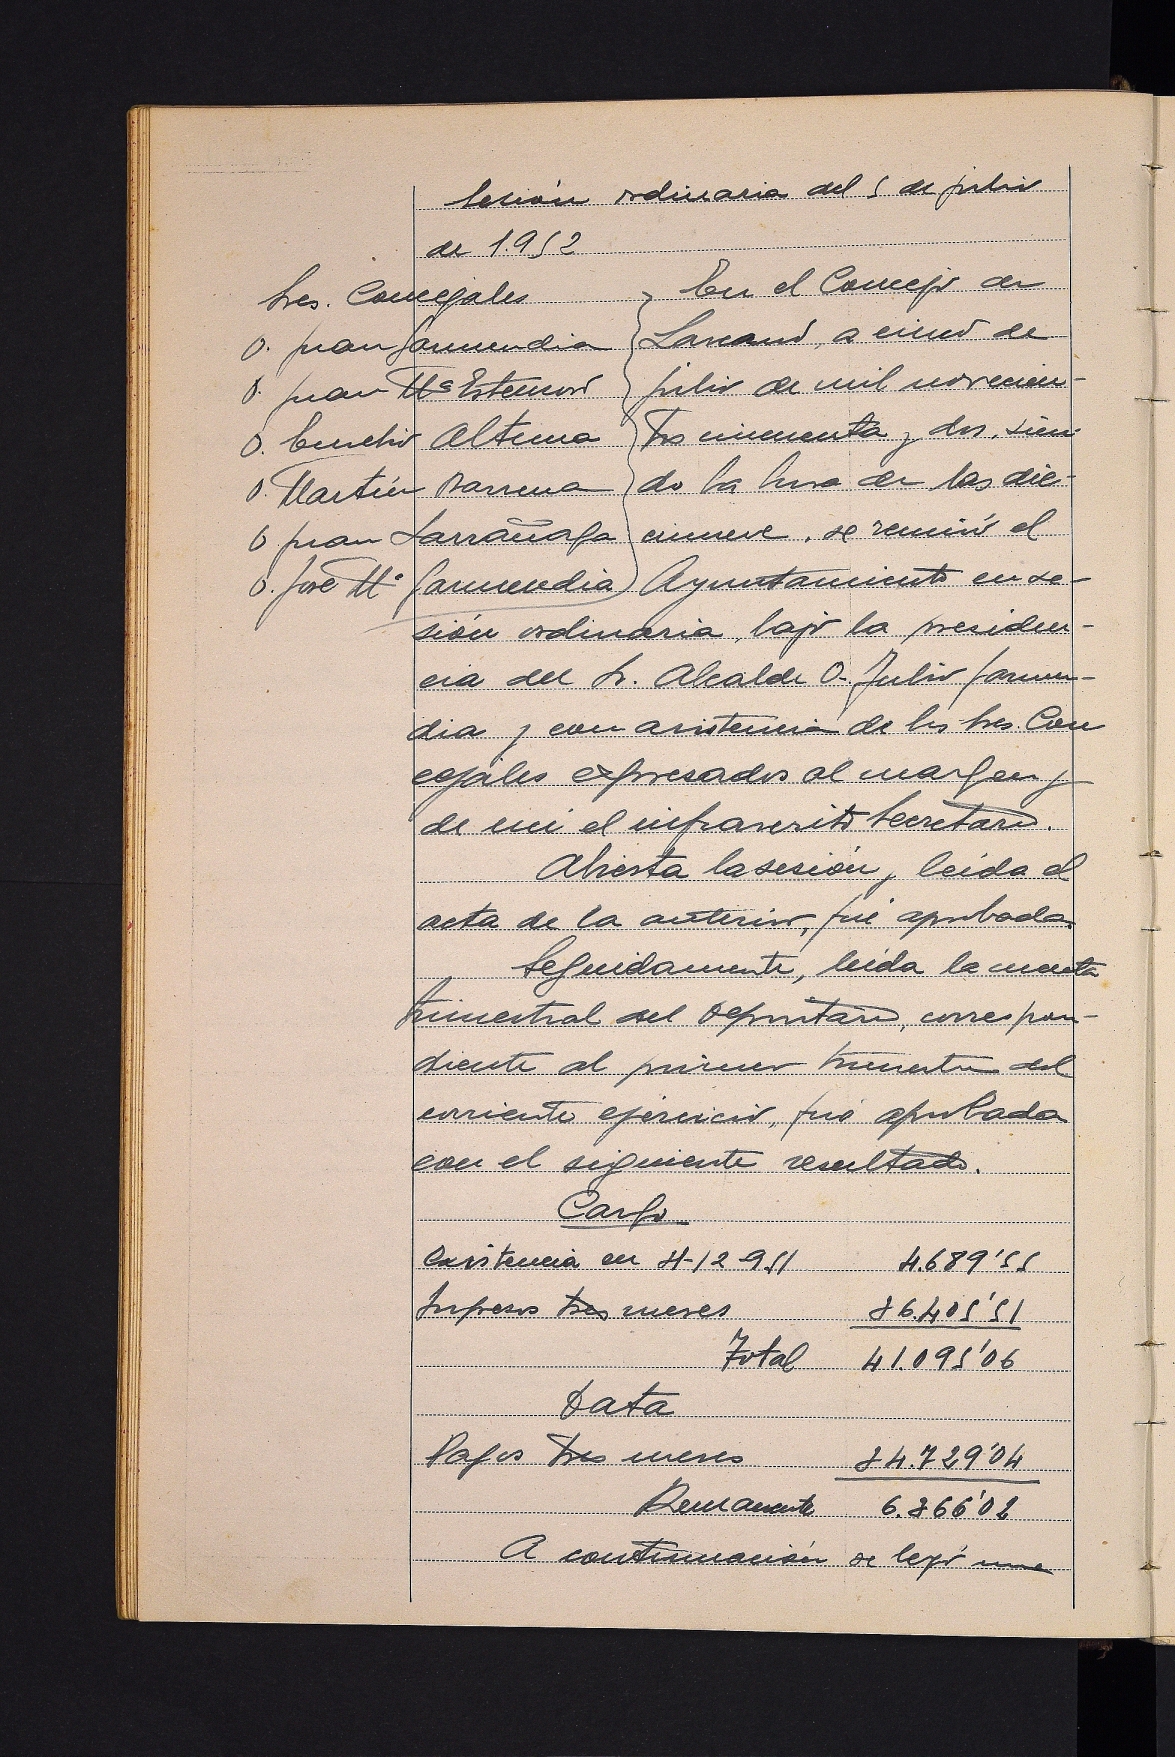 Sesión ordinaria del 5 de julio
de 1.952
Sres. Concejales
D. Juan Garmendia
D. Juan Mª Estensoro
D. Eusebio Altuna
D. Martín Barrena
D. Juan Larrañaga
D. José Mª Garmendia
En el Concejo de
Lazcano, a cinco de
julio de mil novecien-
tos cincuenta y dos, sien-
do la hora de las die-
cinueve, se reunió el
Ayuntamiento en se-
sión ordinaria, bajo la presiden-
cia del Sr. Alcalde D. Julio Garmen-
dia y con asistencia de los Sres. Con
cejales expresados al margen y
de mi el infrascrito Secretario.
Abierta la sesión y leída el
acta de la anterior, fué aprobada.
Seguidamente, leída la cuenta
trimestral del Depositario, correspon-
diente al primer trimestre del
corriente ejercicio, fué aprobada
con el siguiente resultado.
Cargo
Existencia en 31-12-951 4.689'55
Ingresos tres meses 36.405'51
Total 41.095'06
Data
Pagos tres meses 34.729'04
Remanente 6.366'02
A continuación se leyó una